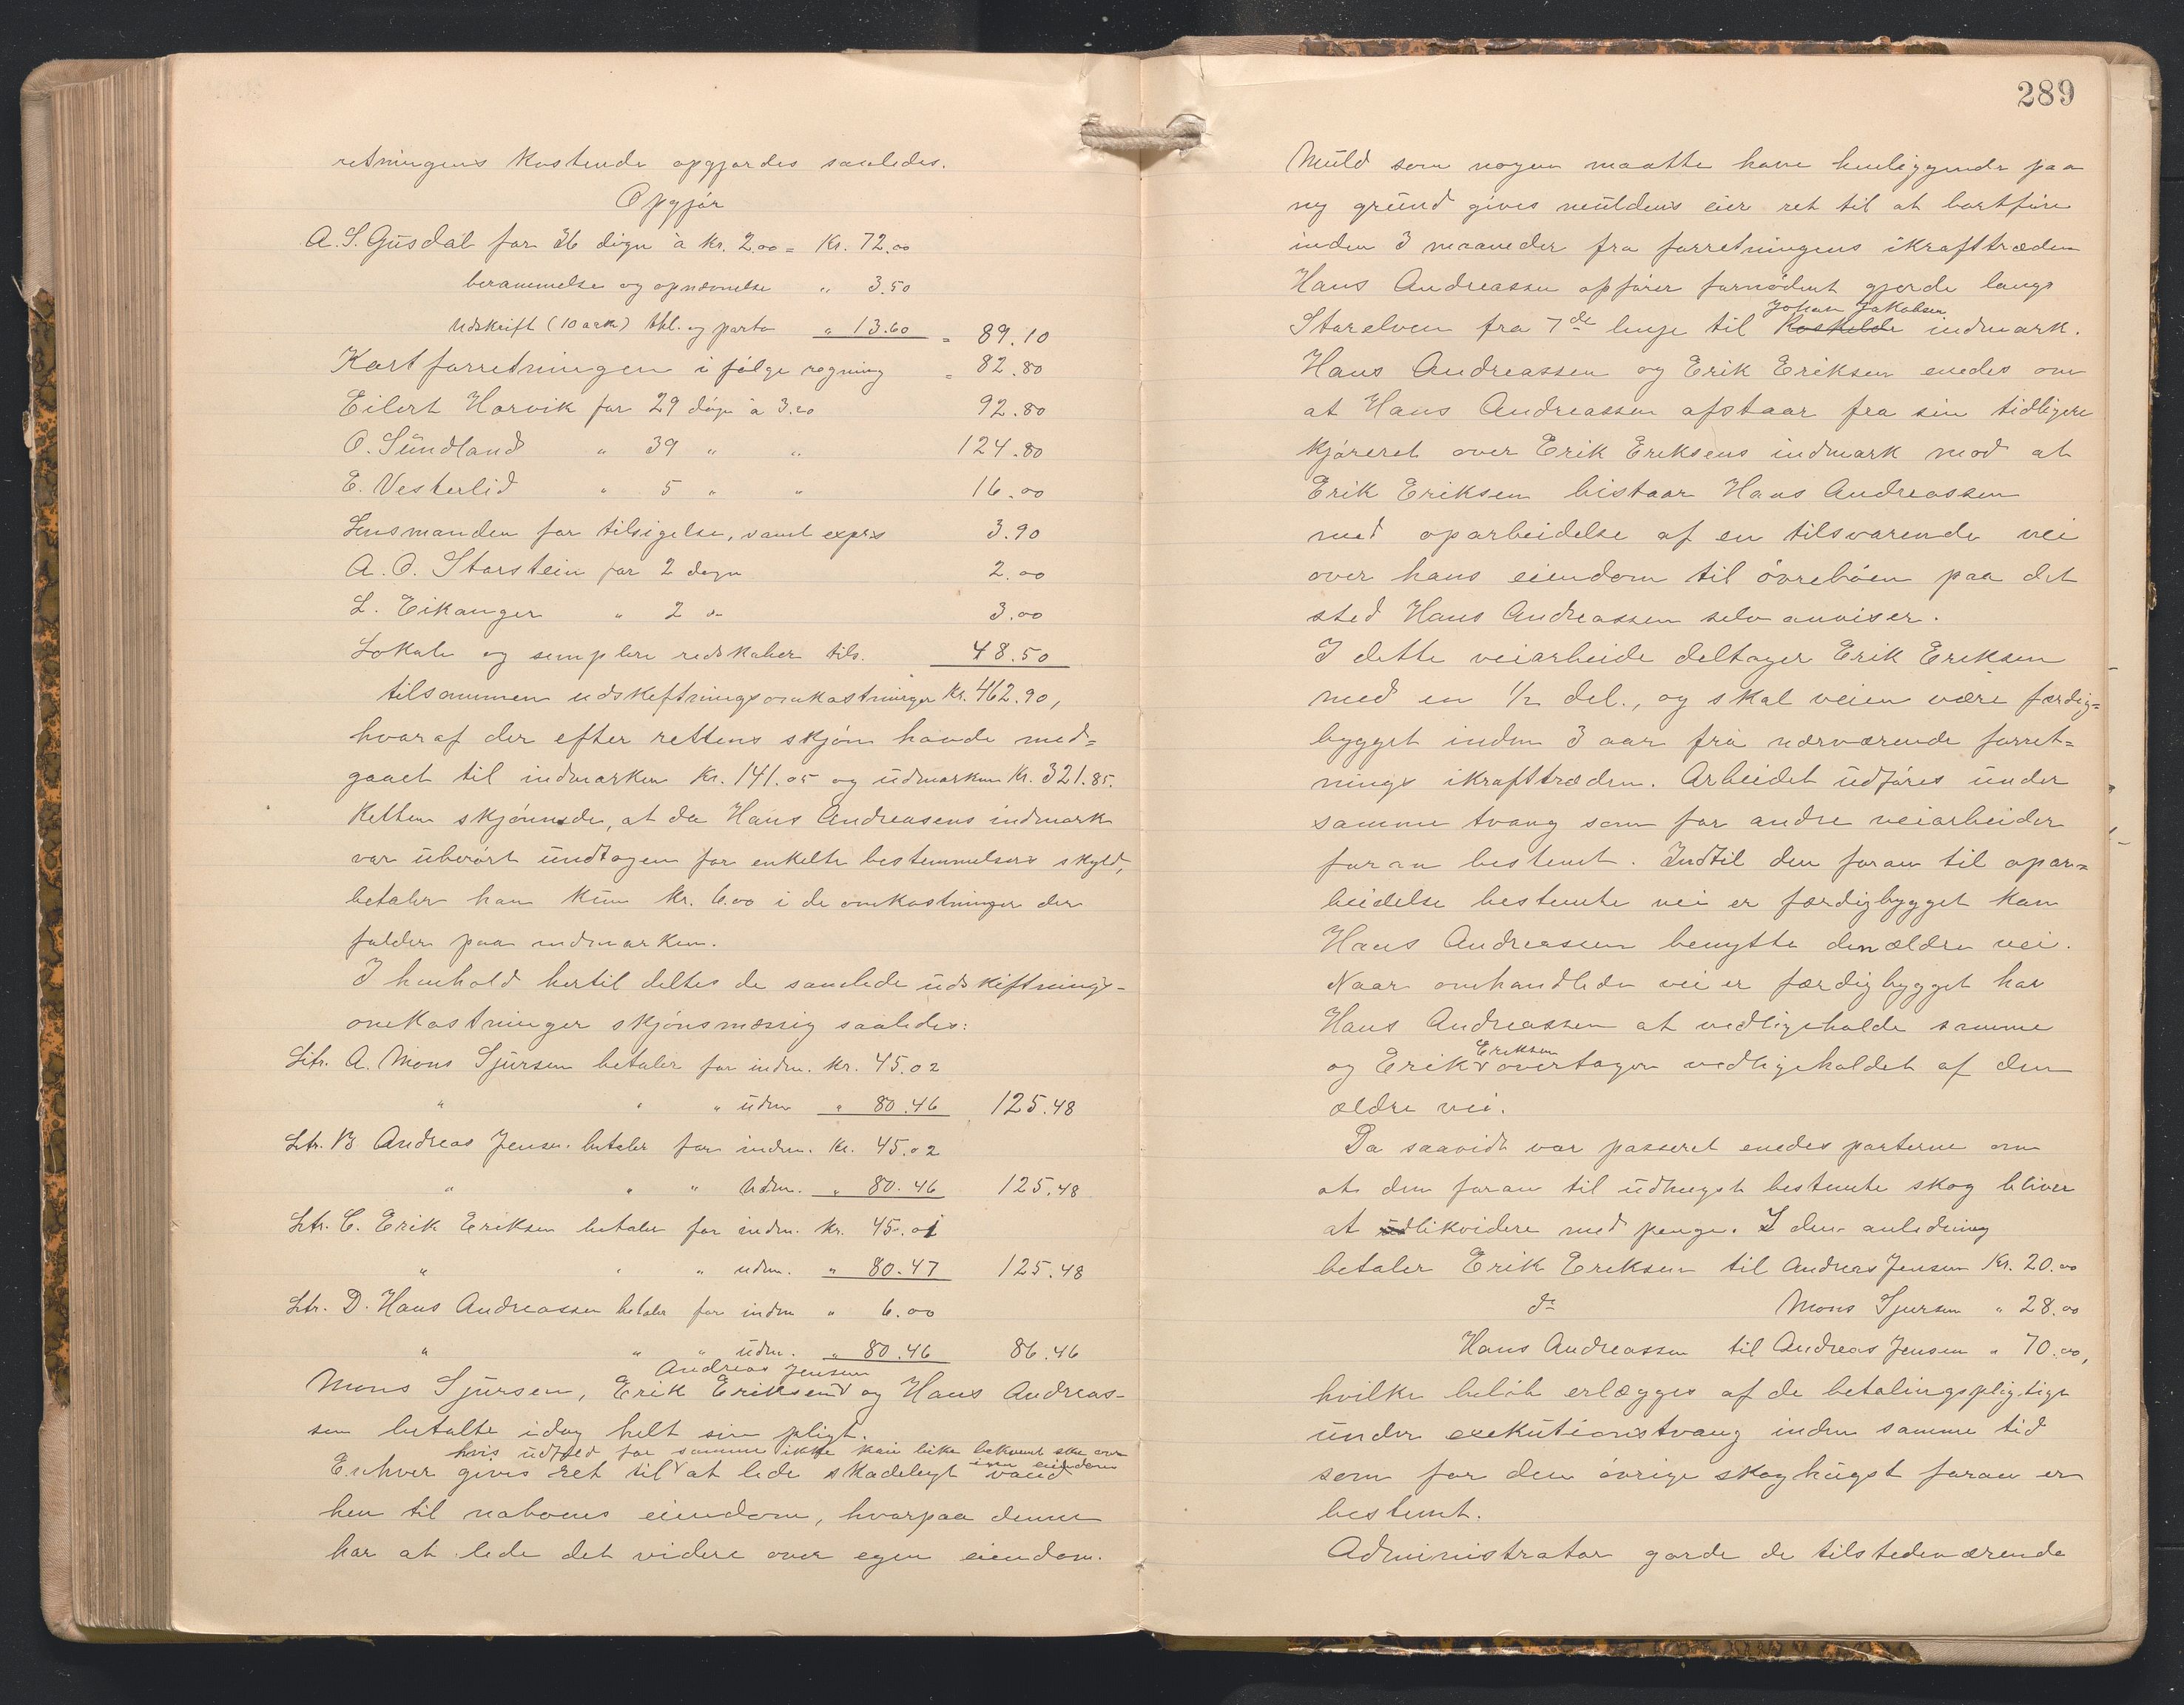 retningens kostende opgjordes saaledes.
Opgjör
A. S. Gusdal for 36 dögn à kr. 2.00 = Kr. 72.00
berammelse og opnævnelse " 3.50
Udskrift (10 ark) thl. og porto " 13.60 = 89.10
Kartforretningen i følge regning = 82.80
Eilert Horvik for 29 dögn à 3.20 92.80
O. Sundland " 39 " " 124.80
E. Vesterlid " 5 " " 16.00
Lensmanden for tilsigelse, samt expres 3.90
A. O. Storstein for 2 dögn 2.00
L. Eikanger " 2 do 3.00
Lokale og simplere redskaber tils. 48.50
tilsammen udskiftningsomkostninger Kr. 462.90,
hvoraf der efter rettens skjön havde med=
gaaet til indmarken Kr. 141.05 og udmarken Kr. 321.85.
Retten skjönnede, at da Hans Andreasens indmark
var uberört undtagen for enkelte bestemmelsers skyld,
betaler han kun kr. 6.00 i de omkostninger der
falder paa indmarken.
I henhold hertil deltes de samlede udskiftnings-
omkostninger skjönsmæssig saaledes:
Litr. A. Mons Sjursen betaler for indm. Kr. 45.02
" " " udm " 80.46 125.48
Litr. B Andreas Jensen betaler for indm. Kr. 45.02
" " " Udm. " 80.46 125.48
Litr. C. Erik Eriksen betaler for indm. Kr. 45.01
" " " udm. " 80.47 125.48
Litr. D. Hans Andreassen betaler for indm " 6.00
" " " udm. " 80.46 86.46
Andreas Jensen
Mons Sjursen, Erik Eriksen og Hans Andreas-
sen betalte idag helt sin pligt.
hvis udfløb for samme ikke kan like bekvemt ske over
egen eiendom
Enhver gives ret til at lede skadeligt vand
hen til naboens eiendom, hvorpaa denne
har at lede det videre over egen eiendom.
289
Muld som nogen maatte have henliggende paa
ny grund gives muldens eier ret til at bortföre
inden 3 maaneder fra forretningens ikrafttræden
Hans Andreassen opförer fornödent gjerde langs
Johan Jakobsen
Storelven fra 7de linje til Rostelde indmark.
Hans Andreassen og Erik Eriksen enedes om
at Hans Andreassen afstaar fra sin tidligere
kjöreret over Erik Eriksens indmark mod at
Erik Eriksen bistaar Hans Andreassen
med oparbeidelse af en tilsvarende vei
over hans eiendom til övreböen paa det
sted Hans Andreassen selv anviser.
I dette veiarbeide deltager Erik Eriksen
med en 1/2 del., og skal veien være færdig=
bygget inden 3 aar fra nærværende forret=
nings ikrafttræden. Arbeidet udföres under
samme tvang som for andre veiarbeider
foran bestemt. Indtil den foran til opar=
beidelse bestemte vei er færdigbygget kan
Hans Andreassen benytte den ældre vei.
Naar omhandlede vei er færdigbygget har
Hans Andreassen at vedligeholde samme
Eriksen
og Erik overtager vedligeholdet af den
ældre vei.
Da saavidt var passeret enedes parterne om
at den foran til udhugst bestemte skog bliver
at udlikvidere med penge. I den anledning
betaler Erik Eriksen til Andreas Jensen Kr. 20.00
do Mons Sjursen " 28.00
Hans Andreassen til Andreas Jensen " 70.00,
hvilke belöb erlægges af de betalingspligtige
under exekutionstvang inden samme tid
som for den övrige skoghugst foran er
bestemt.
Administrator gorde de tilstedeværende